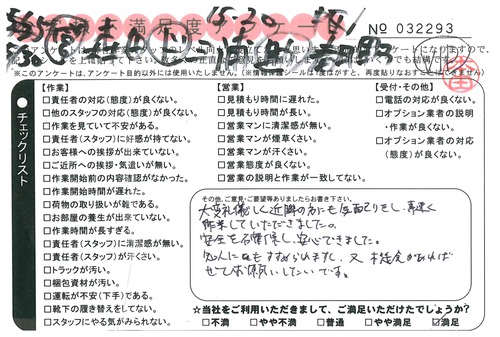 満足度アンケート
15:30
№ 032293
※このアンケートは、アンケート目的以外には使用いたしません。(※情報保護シールは1度はがすと、再度貼りなおすことはできません)
チェックリスト
【作業】
□責任者の対応(態度)が良くない。
□他のスタッフの対応(態度)が良くない。
□作業を見ていて不安がある。
□責任者(スタッフ)に好感が持てない。
□お客様への挨拶が出来ていない。
□ご近所への挨拶・気遣いが無い。
□作業開始前の内容確認がなかった。
□作業開始時間が遅れた。
□荷物の取り扱いが雑である。
□お部屋の養生が出来ていない。
□作業時間が長すぎる。
□責任者(スタッフ)に清潔感が無い。
□責任者(スタッフ)が汗くさい。
□トラックが汚い。
□梱包資材が汚い。
□運転が不安(下手)である。
□靴下の履き替えをしてない。
□スタッフにやる気がみられない。
【営業】
□見積もり時間に遅れた。
□見積もり時間が長い。
□営業マンに清潔感が無い。
□営業マンが煙草くさい。
□営業マンが汗くさい。
□営業態度が良くない。
□営業の説明と作業が一致してない。
【受付・その他】
□電話の対応が良くない。
□オプション業者の説明
・作業が良くない。
□オプション業者の対応
(態度)が良くない。
その他、ご意見・ご要望等ありましたらお書き下さい。
大変礼儀正しく近隣の方にも気配りをし、素早く
作業していただきました。
安全を確保し、安心できました。
知人にもすすめられますし、又、機会があれば
ぜひお願いしたいです。
☆当社をご利用いただきまして、ご満足いただけたでしょうか?
□不満 □やや不満 □普通 □やや満足 ☑満足